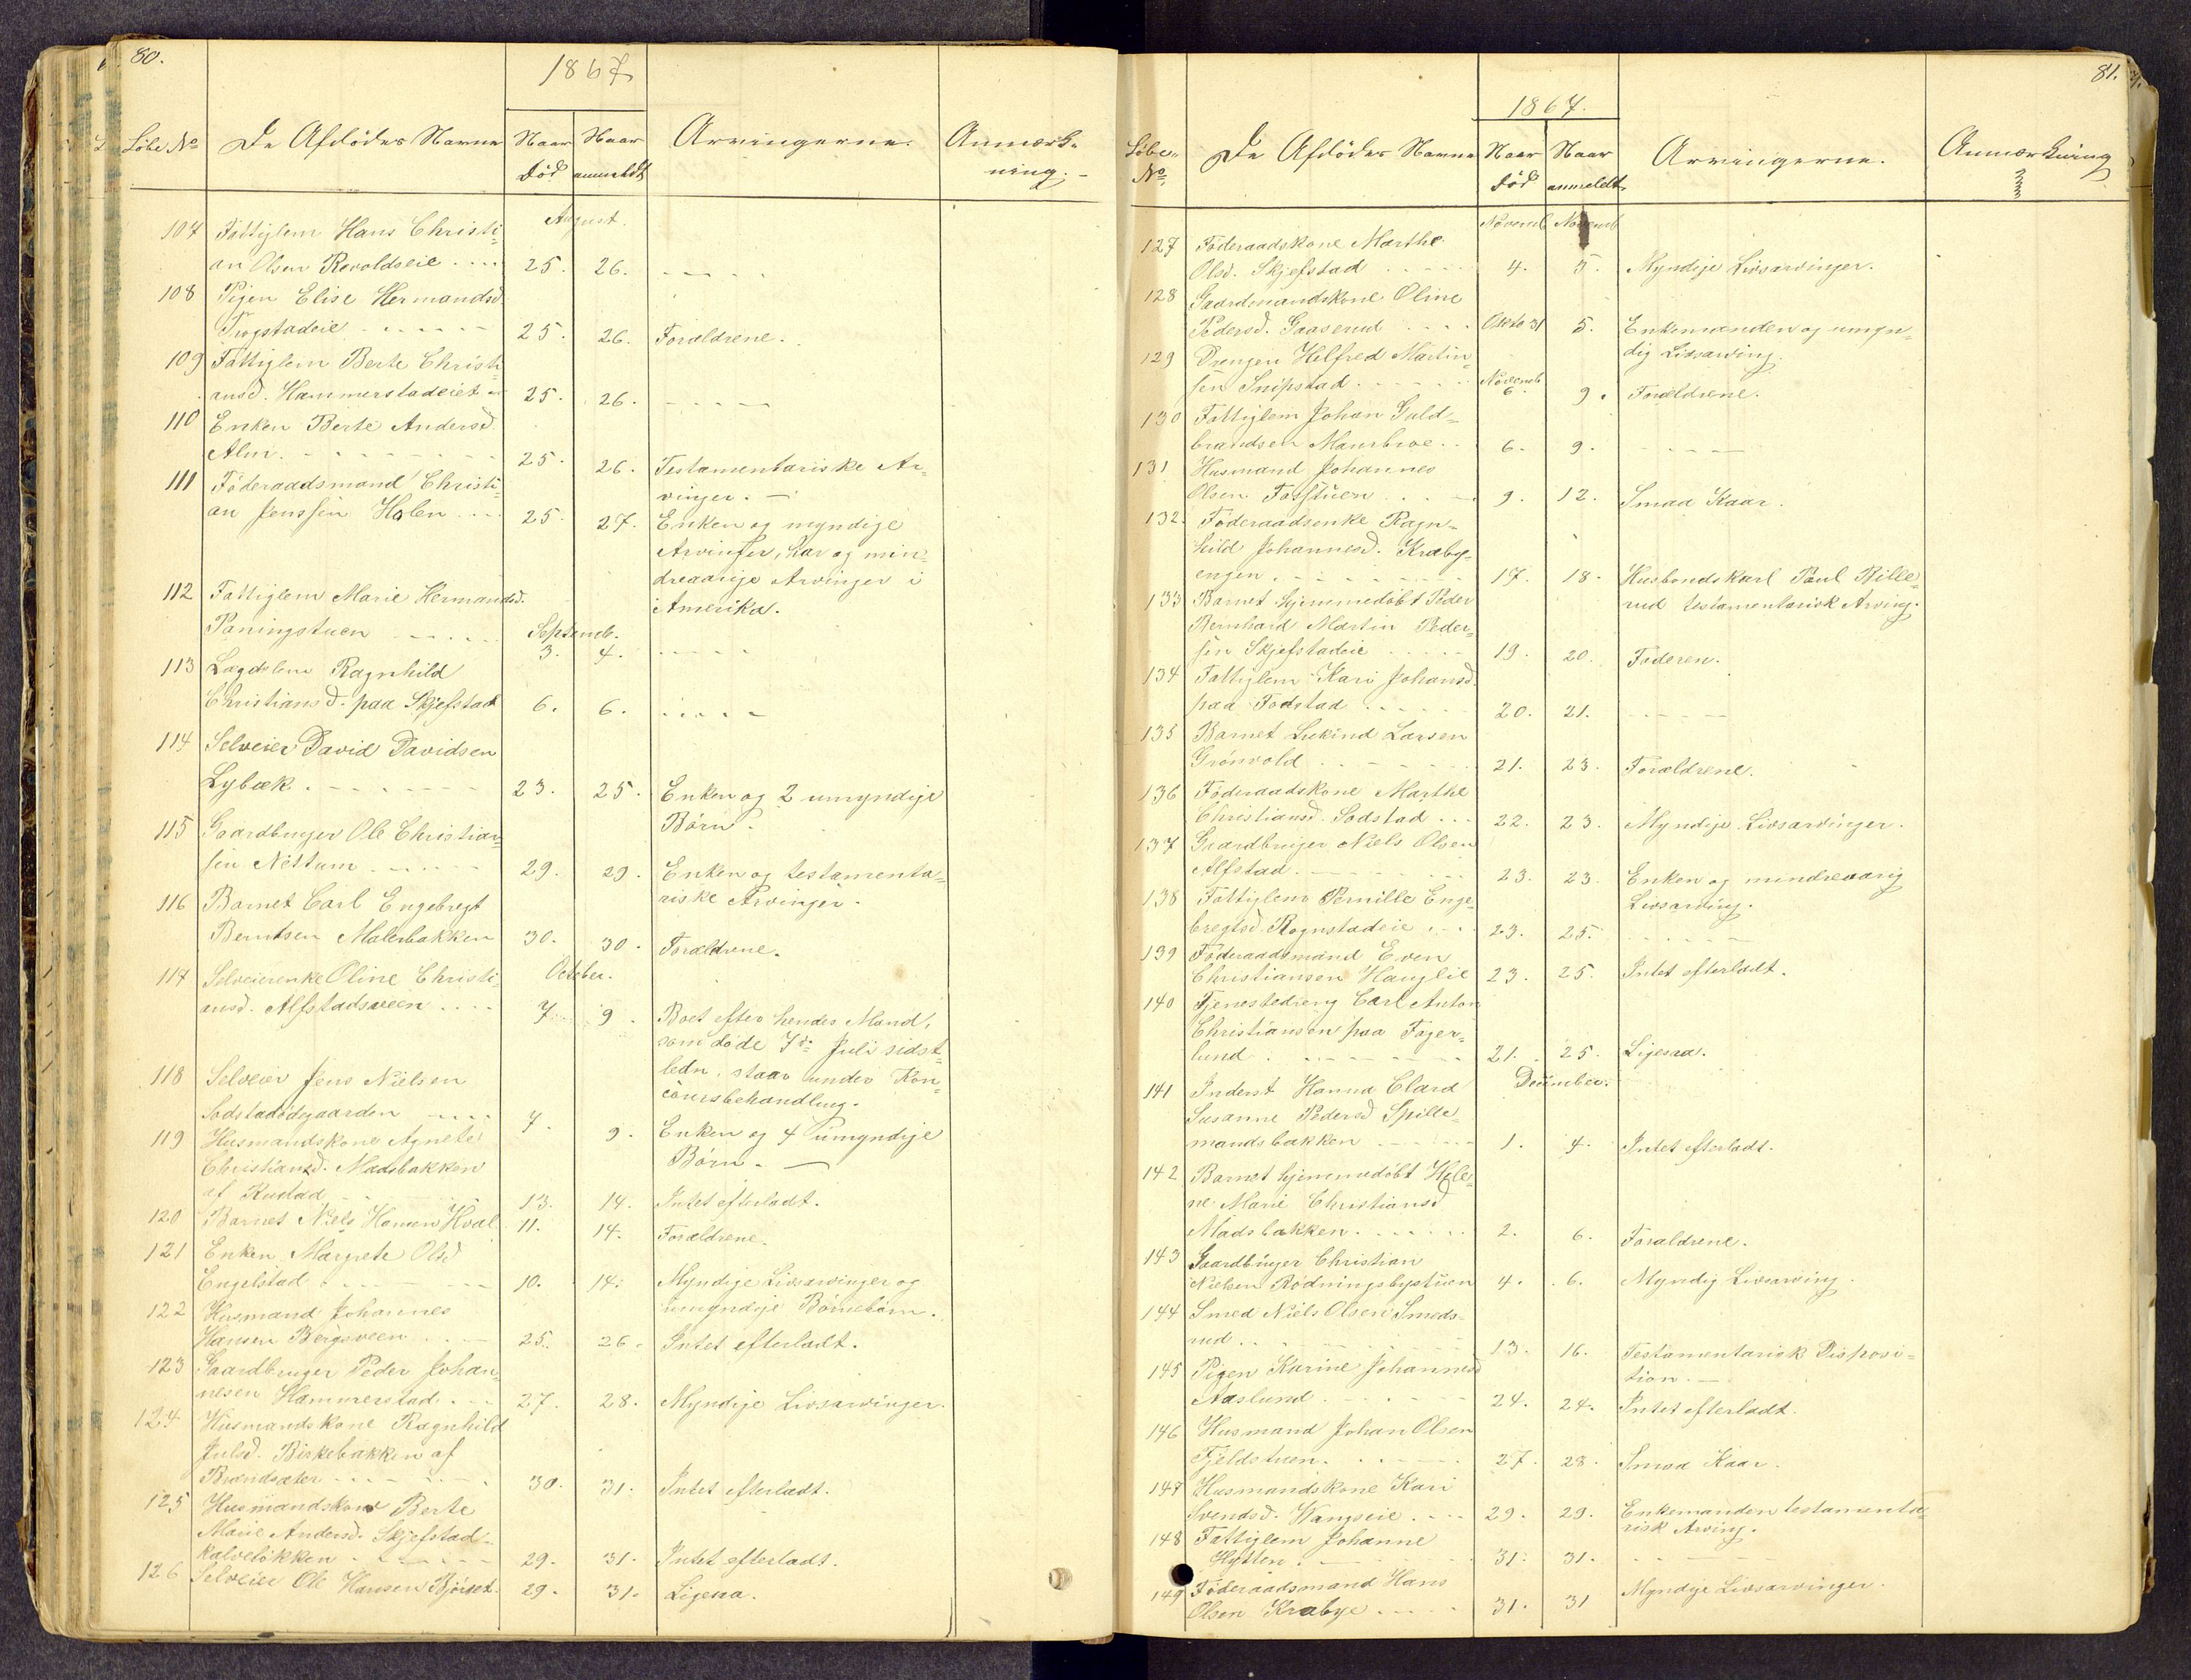 80.
1867
Løbe No De Afdødes Navne Naar Død Naar anmeldt Arvingerne. Anmærk-
ning.
August.
107 Fattiglem Hans Christi-
an Olsen Revoldseie 25. 26. - - - -
108 Pigen Elise Hermandsd.
Togstadeie 25. 26. Forældrene.
109 Fattiglem Berte Christi-
ansd. Hammerstadeiet 25. 26. - - - -
110 Enken Berte Andersd.
Alm. 25. 26. Testamentariske Ar-
vinger.
111 Föderaadsmand Christi-
an Jenssen Holen 25. 27. Enken og myndige
Arvinger, har og min-
dreaarige Arvinger i
Amerika.
112 Fattiglem Marie Hermandsd.
Paningstuen Septemb. 3. 4. - - - -
113 Lægdslem Ragnhild
Christiansd. paa Skjefstad 6. 6. - - - -
114 Selveier David Davidsen
Lybæk 23. 25. Enken og 2 umyndige
Børn.
115 Gaardbruger Ole Christian-
sen Nettum 29. 29. Enken og testamenta-
riske Arvinger.
116 Barnet Carl Engebregt
Berntsen Malerbakken 30. 30. Forældrene.
117 Selveierenke Oline Christi- October.
ansd. Alfstadsveen 7. 9. Boet efter hendes Mand,
som døde 7de Juli sidst-
ledn. staar under Kon-
coursbehandling.
118 Selveier Jens Nielsen
Sodstadødegaarden 7. 9. Enken og 4 umyndige
Børn.
119 Husmandskone Agnete
Christiansd. Madsbakken
af Rustad 13. 14. Intet efterladt.
120 Barnet Niels Hansen Hval 11. 14. Forældrene.
121 Enken Margrete Olsd
Engelstad 10. 14. Myndige Livsarvinger og
umyndige Børnebørn.
122 Husmand Johannes
Hansen Bergsveen 25. 26. Intet efterladt.
123 Gaardbruger Peder Johan-
nesen Hammerstad 27. 28. Myndige Livsarvinger.
124 Husmandskone Ragnhild
Julsd. Birkebakken af
Brændsæter 30. 31. Intet efterladt.
125 Husmandskone Berte
Marie Andersd. Skjefstad-
kalveløkken 29. 31. Intet efterladt.
126 Selveier Ole Hansen Bjørset 29. 31. Ligesaa.
81.
1867.
Løbe- No. De Afdødes Navne Naar Død Naar anmeldt Arvingerne. Anmærkning
Novemb Novemb
127 Föderaadskone Marthe
Olsd. Skjefstad 4. 5. Myndige Livsarvinger.
128 Gaardmandskone Oline
Pedersd. Gaaserud Oktb 31 5. Enkemanden og umyn-
dig Livsarving.
129 Drengen Helfred Martin-
sen Snipstad Novemb 6. 9. Forældrene.
130 Fattiglem Johan Guld-
brandsen Maurbroe 6. 9. - - - -
131 Husmand Johannes
Olsen Fosstuen 9. 12. Smaa Kaar.
132. Föderaadsenke Ragn-
hild Johannesd. Kraby-
engen. 17. 18. Husbondskarl Paul Bille-
rud testamentarisk Arving.
133 Barnet hjemmedøbt Peder
Bernhard Martin Peder-
sen Skjefstadeie 19. 20. Faderen.
134 Fattiglem Kari Johansd.
paa Fodstad 20. 21. - - - -
135 Barnet Lukind Larsen
Grönvold 21. 23. Forældrene.
136 Föderaadskone Marthe
Christiansd. Sodstad 22. 23. Myndige Livsarvinger.
137 Gaardbruger Niels Olsen
Alfstad. 23. 23. Enken og mindreaarig
Livsarving.
138 Fattiglem Pernille Enge-
bregtsd. Rognstadeie 23. 25. - - - -
139 Föderaadsmand Even
Christiansen Hauglie 23. 25. Intet efterladt.
140 Tjenestedreng Carl Anton
Christiansen paa Fager-
lund 21. 25. Ligesaa.
141 Inderst Hanna Clara December.
Susanne Pedersd Spille-
mandsbakken 1. 4. Intet efterladt.
142 Barnet hjemmedøbt Hele-
ne Marie Christiansd
Madsbakken. 2. 6. Forældrene.
143 Gaardbruger Christian
Nielsen Rødningsbystuen 4. 6. Myndig Livsarving.
144 Smed Niels Olsen Smeds-
rud 13. 16. Testamentarisk Disposi-
tion.
145 Pigen Karine Johannesd
Aaslund 24. 24. Intet efterladt.
146 Husmand Johan Olsen
Fjeldstuen. 27. 28. Smaa Kaar.
147 Husmandskone Kari
Svendsd. Wangseie 29. 29. Enkemanden testamenta-
risk Arving.
148 Fattiglem Johanne
Hytten. 31. 31. - - - -
149 Föderaadsmand Hans
Olsen Krabye 31. 31 Myndige Livsarvinger.